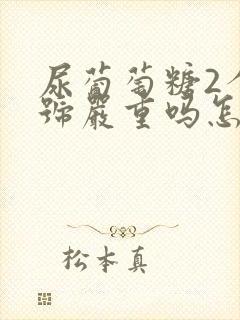 尿葡萄糖2个
號嚴重吗怎
松本真